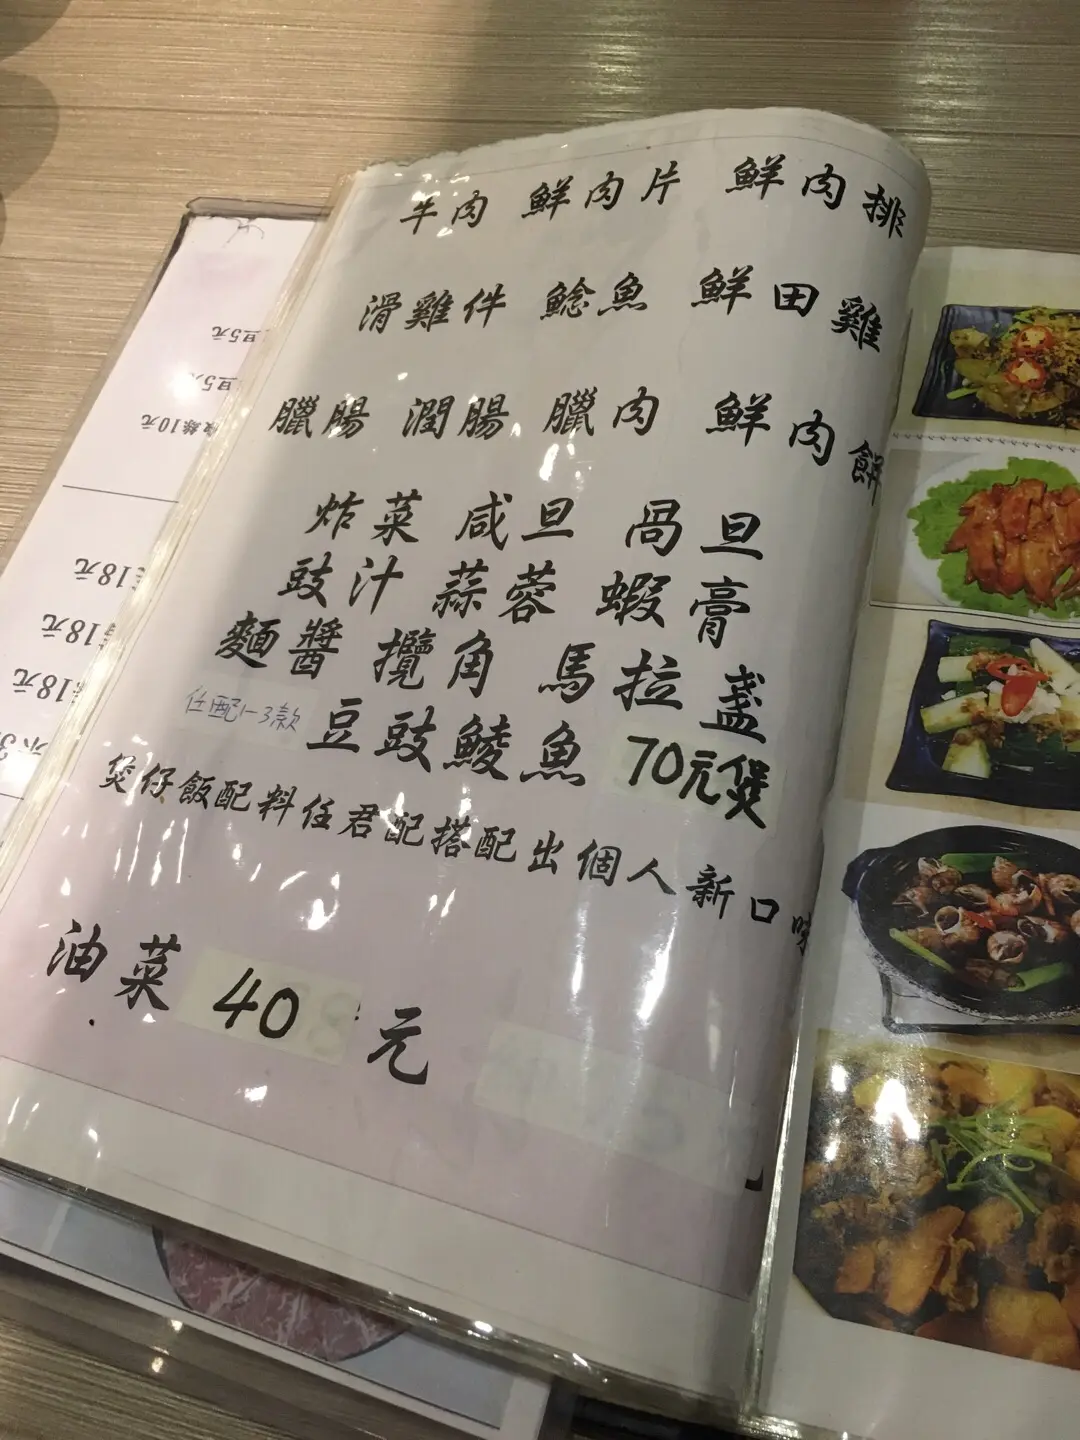 牛肉 鮮肉片 鮮肉排
滑雞件 鯰魚 鮮田雞
臘腸 潤腸 臘肉 鮮肉餅
炸菜 咸旦 咼旦
豉汁 蒜蓉 蝦膏
麵醬 攬角 馬拉盏
任配1-3款 豆豉鯪魚 70元煲
煲仔飯配料任君配搭配出個人新口味
油菜 40元
旦5元
旦5元
10元
18元
18元
18元